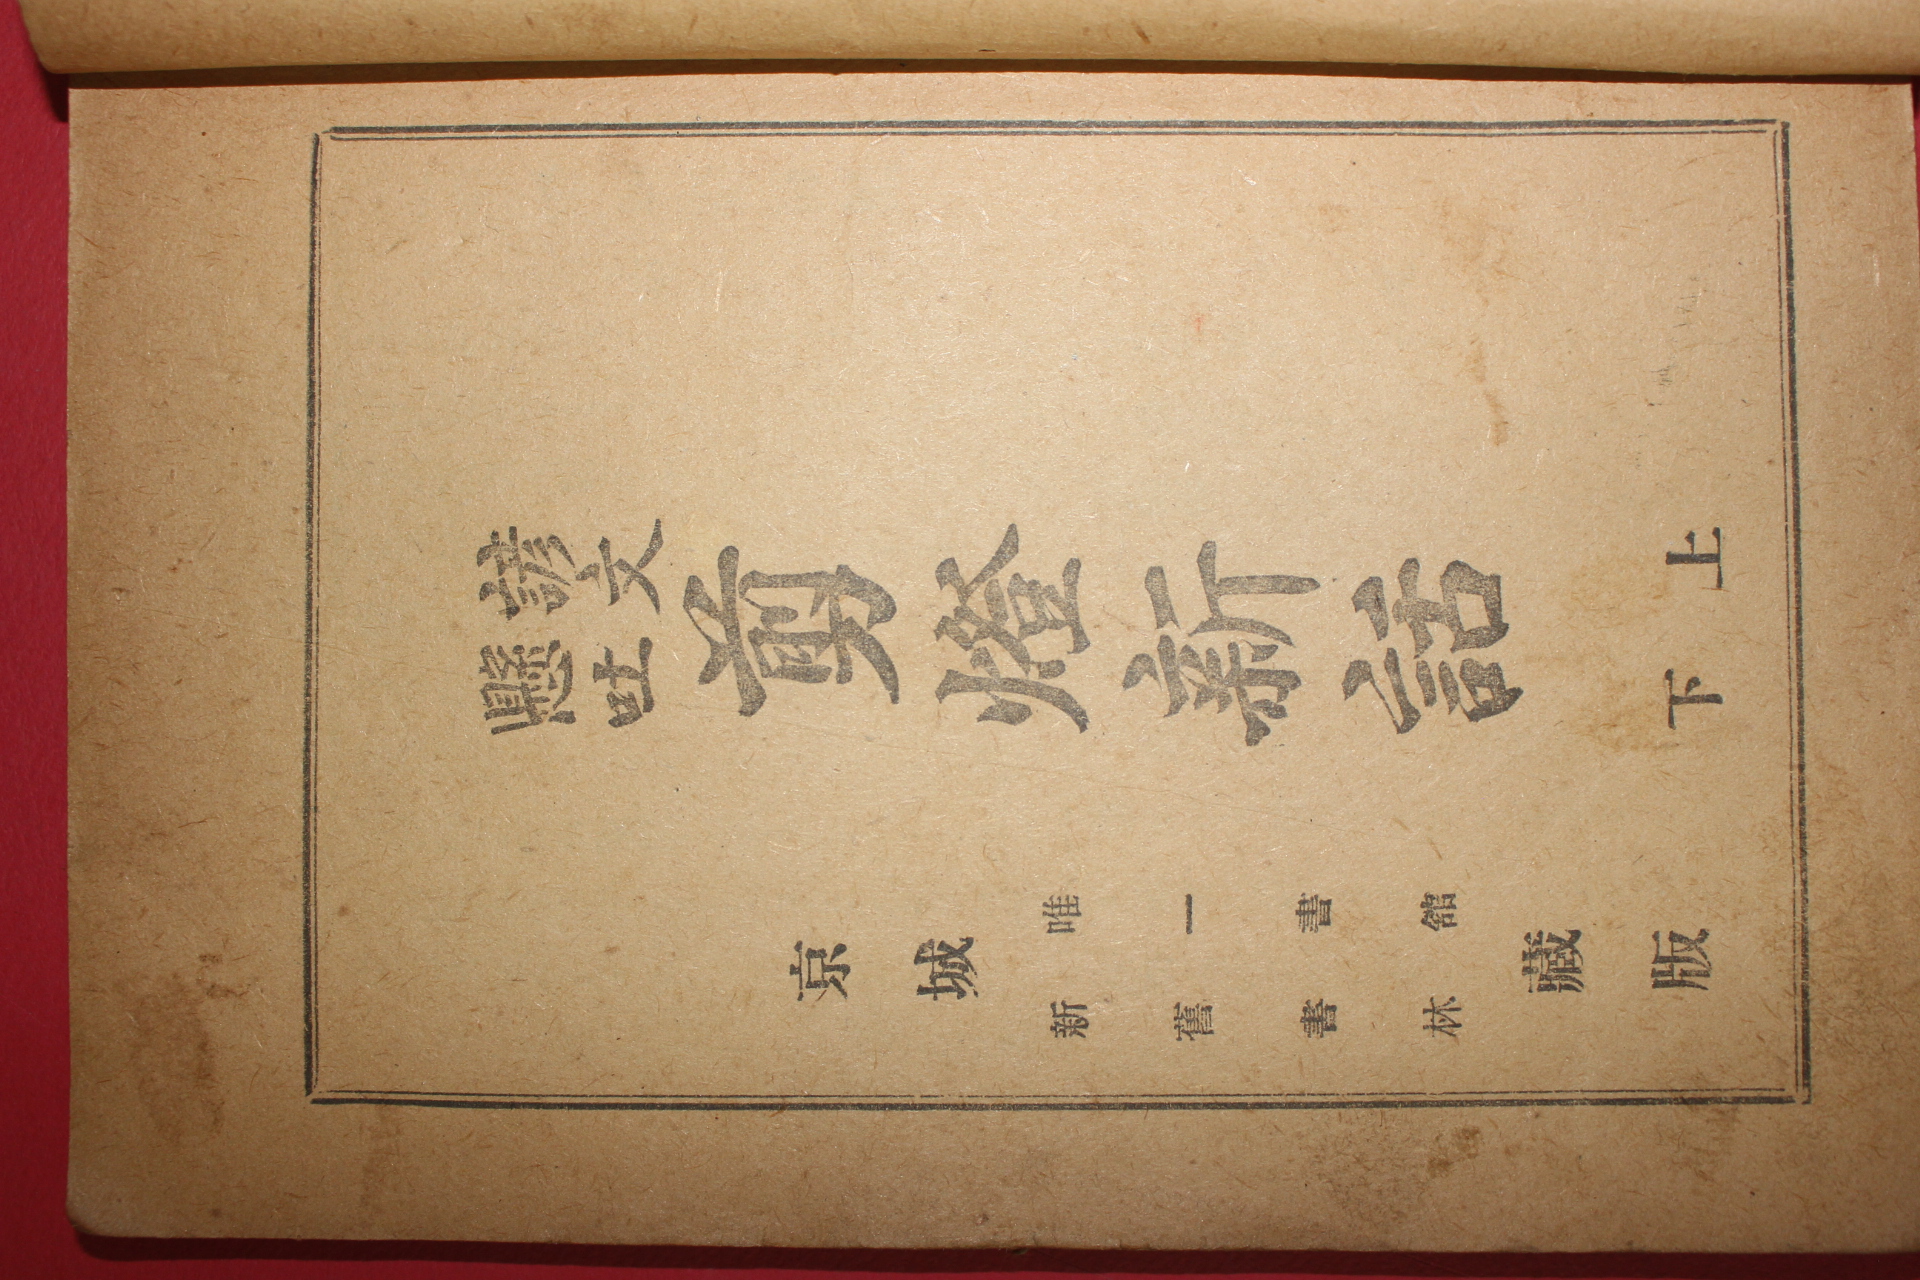 諺文
懸吐
剪燈新話
上
下
京城
唯一書館
新舊書林
藏版